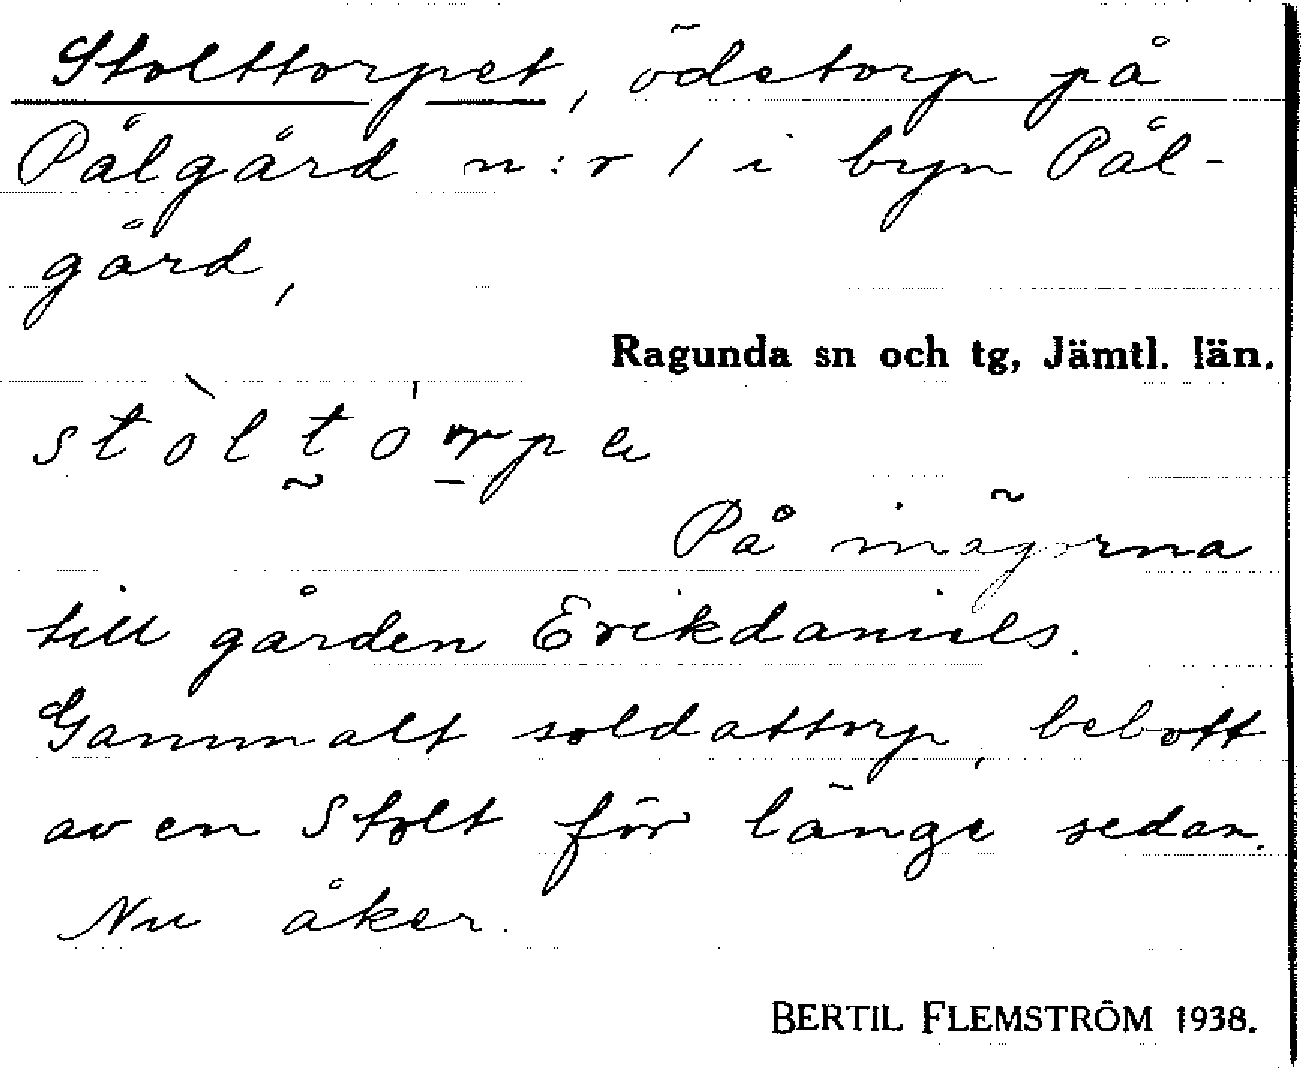 Stolttorpet, ödetorp på
Pålgård n:r 1 i byn Pål-
gård,
Ragunda sn och tg, Jämtl. län.
stòltórpa
På inägorna
till gården Erikdaniels.
Gammalt soldattorp, bebott
av en Stolt för länge sedan.
Nu åker.
BERTIL FLEMSTRÖM 1938.